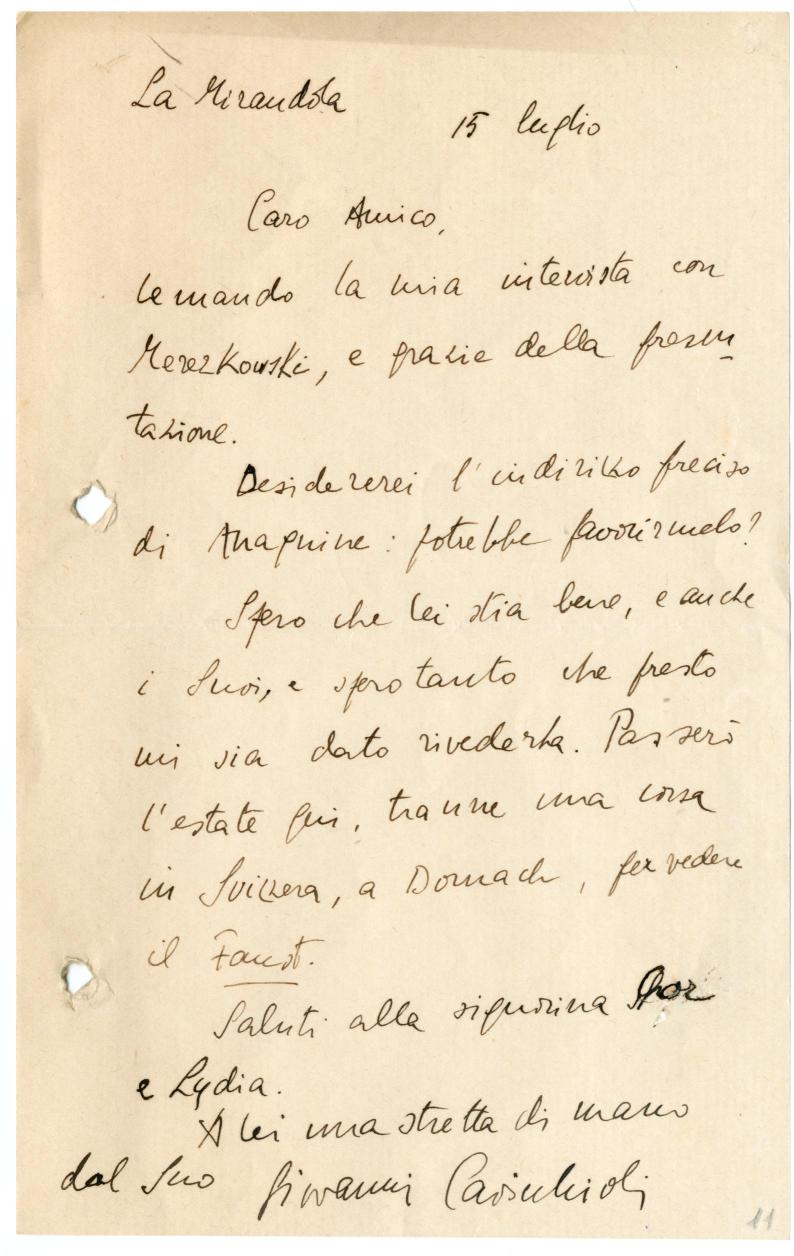 La Mirandola
15 luglio
Caro Amico,
le mando la mia intervista con
Merezkowski, e grazie della presen-
tazione.
Desidererei l'indirizzo preciso
di Anagnine: potrebbe favorirmelo?
Spero che lei stia bene, e anche
i Suoi, e spero tanto che presto
mi sia dato rivederla. Passerò
l'estate qui, tranne una corsa
in Svizzera, a Dornach, per vedere
il Faust.
Saluti alla signorina
e Lydia.
A lei una stretta di mano
dal Suo Giovanni Cavicchioli
11